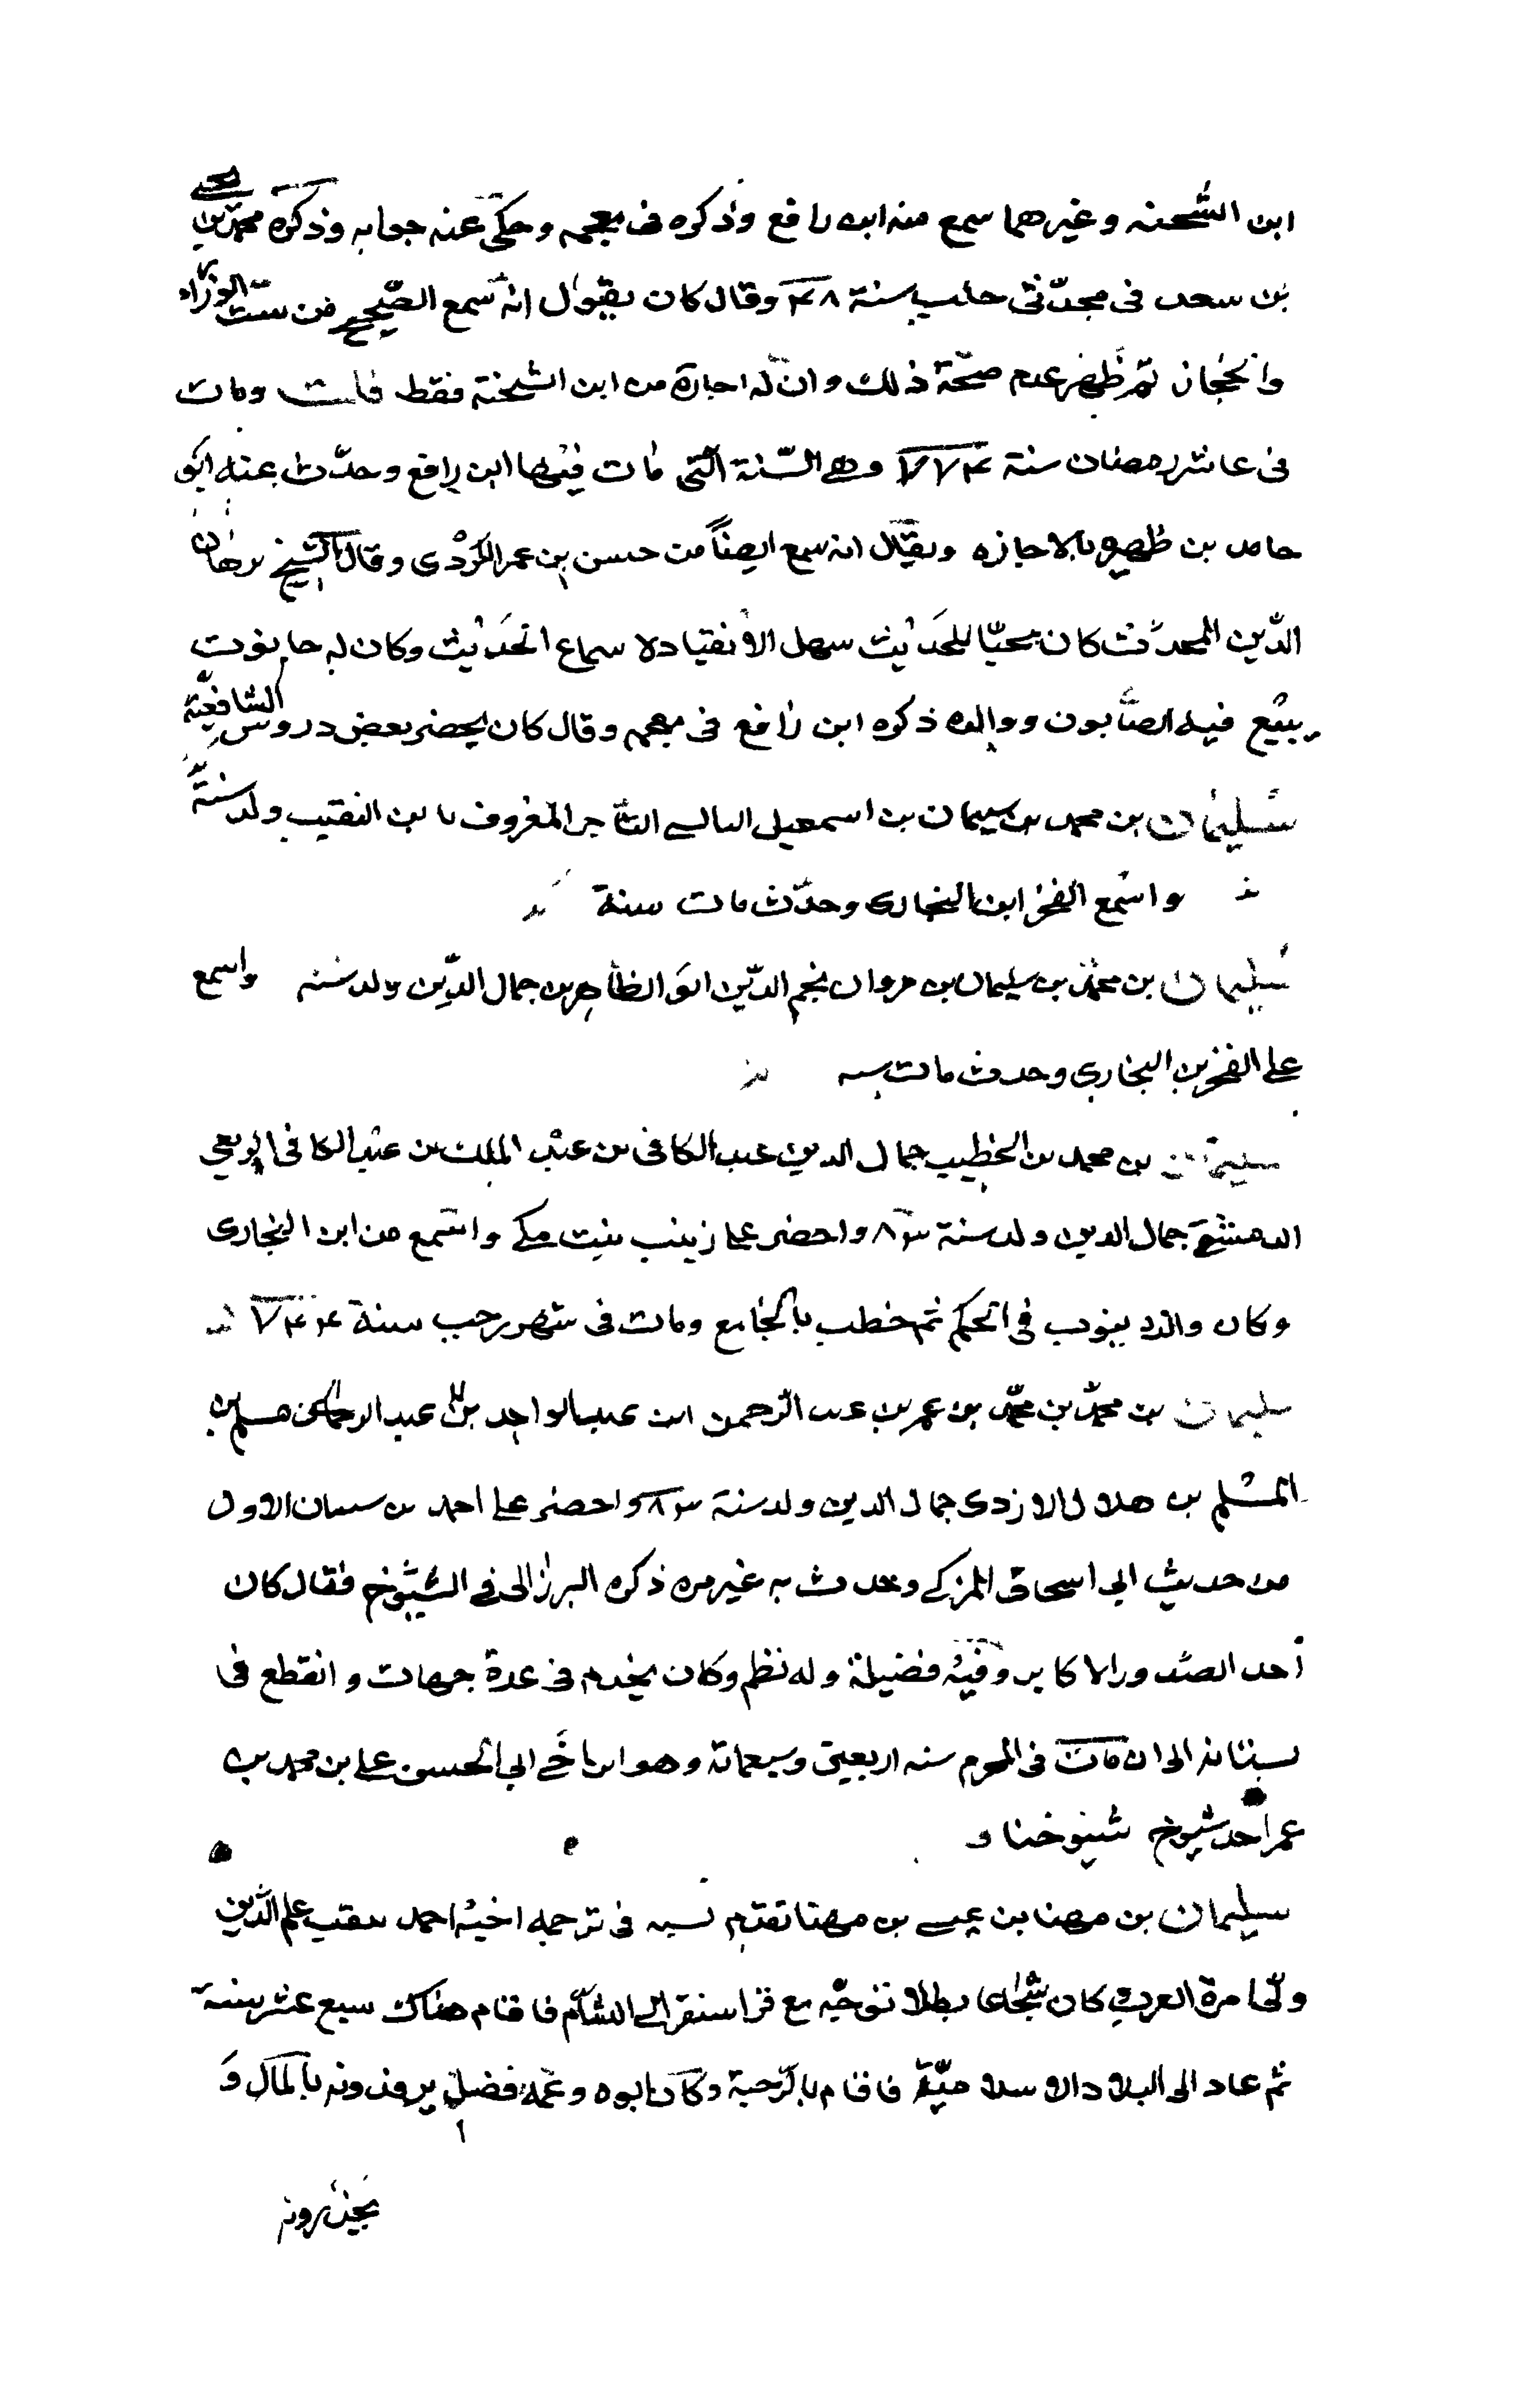 ابن الشحنه وغيرهما سمع منه ابن رافع وذكره فى معجمه وحكى عنه جوابه وذكره محمد بن يحيى
بن سعد فى محدّثى حلب سنة ٧٤٨ وقال كان يقول انه سمع الصّحيح من ستّ الوزراء
والحجار ثم ظهر عدم صحّة ذلك وان له اجازة من ابن الشحنة فقط قلت ومات
فى عاشر رمضان سنة ٧٧٤ وهى السّنة التى مات فيها ابن رافع وحدّث عنه ابو
حامد بن ظهيره بالاجازه ويقال انه سمع ايضاً من حسن بن عمر الكردى وقال الشيخ برهان
الدّين المحدّث كان محبّا للحديث سهل الانقياد لا سماع الحديث وكان له حانوت
يبيع فيه الصّابون ووالده ذكره ابن رافع فى معجمه وقال كان يحضر بعض دروس الشافعيّة
سليمان بن محمد بن سليمان بن اسمعيل البالسى التّاجر المعروف بابن النقيب ولد سنة
واسمع الفخر ابن البخارى وحدّث مات سنة
سليمان بن محمّد بن سليمان بن مروان نجم الدّين ابو الطّاهر بن جمال الدّين ولد سنه واسمع
على الفخر بن البخارى وحدث مات سنه
سليمان بن محمد بن الخطيب جمال الدين عبد الكافى بن عبد الملك بن عبد الكافى الربعى
الدمشقى جمال الدين ولد سنة ٦٨٣ واحضر على زينب بنت مكى واسمع من ابن البخارى
وكان والده ينوب فى الحكم ثم خطب بالجامع ومات فى شهر رجب سنة ٧٤٤
سليمان بن محمّد بن محمّد بن عمر بن عبد الرّحمن ابن عبد الواحد بن عبد الرحمن مسلم بن
المسلم بن هلال الازدى جمال الدين ولد سنة ٦٨٣ واحضر على احمد بن سنان الاول
من حديث ابى اسحاق المزكى وحدث به غير مره ذكره البرزالى فى الشيوخ فقال كان
احد الصّدور الاكابر وفيه فضيلة وله نظم وكان يخدم فى عدة جهات وانقطع فى
بستانه الى ان مات فى المحرم سنه اربعين وسبعماتة وهو ابن اخى ابى الحسن على بن محمد بن
عمر احد شيوخ شيوخنا
سليمان بن مهنا بن عيسى بن مهنا تقدّم نسبه فى ترجمه اخيه احمد يلقب علم الدّين
ولى امرة العرب كان شجاعا بطلا توجّه مع قراسنقر الى الشام فاقام هناك سبع عشر سنة
ثم عاد الى البلاد الاسلاميّة فاقام بالرّحبة وكان ابوه وعمه فضل يرفدونه بالمال و